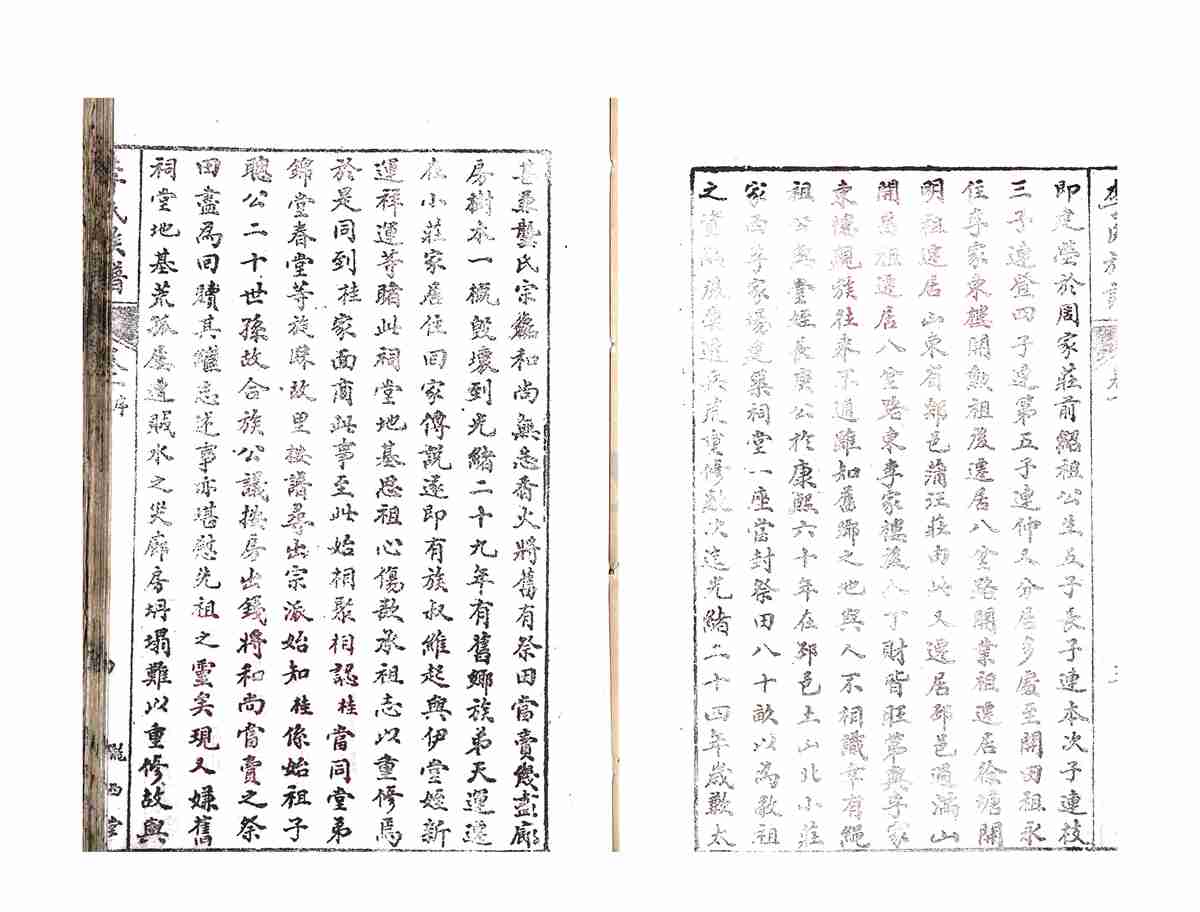 即建塋於周家莊前紹祖公生五子長子連本次子連枝
三子連登四子連第五子連仲又分居多處至開田祖永
住李家東樓開勲祖後遷居八空路開業祖遷居徐塘開
明祖遷居山東省郯邑蒲汪莊由此又遷居邳邑過滿山
開昌祖遷居八空路東李家樓後人丁財皆旺第與李家
東樓親族往來不通雖知舊鄉之地與人不相識幸有繩
祖公與臺姪長庚公於康熙六十年在邳邑土山北小莊
家西李家場建築祠堂一座當封祭田八十畝以為敬祖
之資 重修數次迄光緒二十四年歲歉太
甚兼龔氏宗蠡和尚無忌香火將舊有祭田當賣幾盡廊
房樹木一概毀壞到光緒二十九年有舊鄉族弟天運遷
在小莊家居住回家傳說遂即有族叔維起與伊堂姪新
運祥運等睹此祠堂地基思祖心傷歎承祖志以重修焉
於是同到桂家面商此事至此始相聚相認桂當同堂弟
錦堂春堂等旋歸故里按譜尋出宗派始知桂係始祖子
聰公二十世孫故合族公議按房出錢將和尚當賣之祭
田盡為回贖其繼志述事亦堪慰先祖之靈矣現又嫌舊
祠堂地基荒孤屢遭賊水之災廊房坍塌難以重修故與
李氏族譜 卷一 序 隴西堂